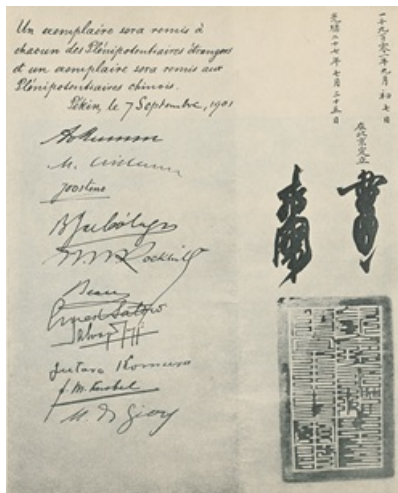 Un exemplaire sera remis à
chacun des Plénipotentiaires étrangers
et un exemplaire sera remis aux
Plénipotentiaires chinois.
Pékin, le 7 Septembre, 1901
Joostens
B J de Cólogan
W. W. Rockhill
Beau
Ernest Satow
Salvago Raggi
Jutaro Komura
F. M. Knobel
M. de Giers
一千九百零一年九月初七日
光緒二十七年七月二十五日
在北京定立